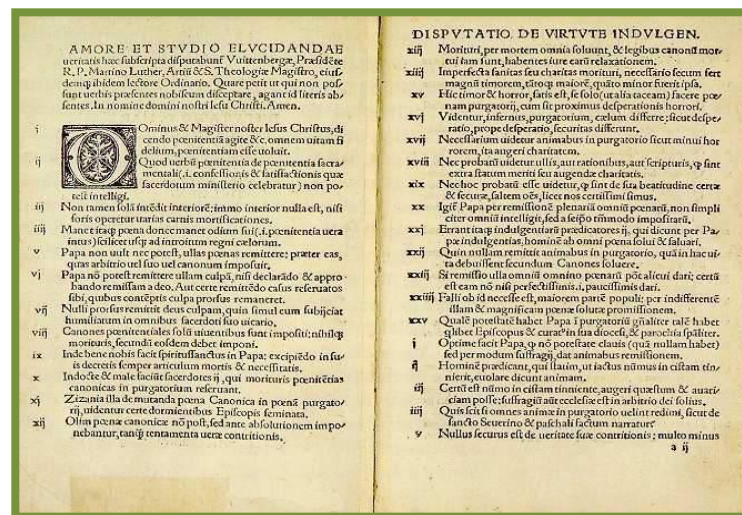 AMORE ET STVDIO ELVCIDANDAE
ueritatis hæc subscripta disputabunt̃ Vuittenbergæ, Præsidẽte
R. P. Martino Luther, Artiũ & S. Theologiæ Magistro, eius-
demq; ibidem lectore Ordinario. Quare petit ut qui non pos-
sunt uerbis præsentes nobiscum disceptare, agant id literis ab-
sentes. In nomine domini nostri Iesu Christi. Amen.
i DOminus & Magister noster Iesus Christus, di-
cendo pœnitentiã agite &c. omnem uitam fi
delium, pœnitentiam esse uoluit.
ij Quod uerbũ pœnitentia de pœnitentia sacra-
mentali (.i. confessionis & satisfactionis quæ
sacerdotum ministerio celebratur) non po-
test intelligi.
iij Non tamen solã intẽdit interiorẽ; immo interior nulla est, nisi
foris operetur uarias carnis mortificationes.
iiij Manet itaq; pœna donec manet odium sui (.i. pœnitentia uera
intus) scilicet usq; ad introitum regni cælorum.
v Papa non uult nec potest, ullas pœnas remittere; præter eas,
quas arbitrio uel suo uel canonum imposuit.
vj Papa nõ potest remittere ullam culpã, nisi declarãdo & appro
bando remissam a deo. Aut certe remittẽdo casus reseruatos
sibi, quibus contẽptis culpa prorsus remaneret.
vij Nulli prorsus remittit deus culpam, quin simul eum subijciat
humiliatum in omnibus sacerdoti suo uicario.
viij Canones pœnitentiales solũ uiuentibus sunt impositi; nihilq;
morituris, secundũ eosdem debet imponi.
ix Inde bene nobis facit spiritussanctus in Papa; excipiẽdo in su-
is decretis semper articulum mortis & necessitatis.
x Indocte & male faciũt sacerdotes ij, qui morituris pœnitẽtias
canonicas in purgatorium reseruant.
xj Zizania illa de mutanda pœna Canonica in pœnã purgato-
rij, uidentur certe dormientibus Episcopis seminata.
xij Olim pœnæ canonicæ nõ post, sed ante absolutionem impo-
nebantur, tanq̃ tentamenta ueræ contritionis.
DISPVTATIO DE VIRTVTE INDVLGEN.
xiij Morituri, per mortem omnia soluunt, & legibus canonũ mor-
tui iam sunt, habentes iure earũ relaxationem.
xiiij Imperfecta sanitas seu charitas morituri, necessario secum fert
magnũ timorem, tãtoq; maiorẽ, quãto minor fuerit ipsa.
xv Hic timor & horror, satis est, se solo (ut alia taceam) facere pœ-
nam purgatorij, cum sit proximus desperationis horrori.
xvj Videntur, infernus, purgatorium, cælum differre; sicut despe-
ratio, prope desperatio, securitas differunt.
xvij Necessarium uidetur animabus in purgatorio sicut minui hor
rorem, ita augeri charitatem.
xviij Nec probatũ uidetur ullis, aut rationibus, aut scripturis, q̃ sint
extra statum meriti seu augendæ charitatis.
xix Nec hoc probatũ esse uidetur, q̃ sint de sua beatitudine certæ
& securæ, saltem oẽs, licet nos certissimi simus.
xx Igit̃ Papa per remissionẽ plenariã omniũ pœnarũ, non simpli
citer omniũ intelligit, sed a seipso tm̃modo impositarũ.
xxj Errant itaq; indulgentiarũ prædicatores ij, qui dicunt per Pa-
pæ indulgentias, hominẽ ab omni pœna solui & saluari.
xxij Quin nullam remittit animabus in purgatorio, quã in hac ui-
ta debuissent secundum Canones soluere.
xxiij Si remissio ulla omniũ omnino pœnarũ põt alicui dari; certũ
est eam nõ nisi perfectissimis .i. paucissimis dari.
xxiiij Falli ob id necesse est, maiorem partẽ populi; per indifferentẽ
illam & magnificam pœnæ solutæ promissionem.
xxv Qualẽ potestatẽ habet Papa ĩ purgatoriũ gñaliter talẽ habet
q̃libet Episcopus & curat⁹ in sua diocesi, & parochia sp̃aliter.
i Optime facit Papa, q̃ nõ potestate clauis (quã nullam habet)
sed per modum suffragij, dat animabus remissionem.
ij Hominẽ prædicant, qui statim, ut iactus nũmus in cistam tin-
nierit, euolare dicunt animam.
iij Certũ est nũmo in cistam tinniente, augeri quæstum & auari-
ciam posse; suffragiũ aũt ecclesiæ est in arbitrio dei solius.
iiij Quis scit si omnes animæ in purgatorio uelint redimi, sicut de
sancto Seuerino & paschali factum narratur
v Nullus securus est de ueritate suæ contritionis; multo minus
a ij